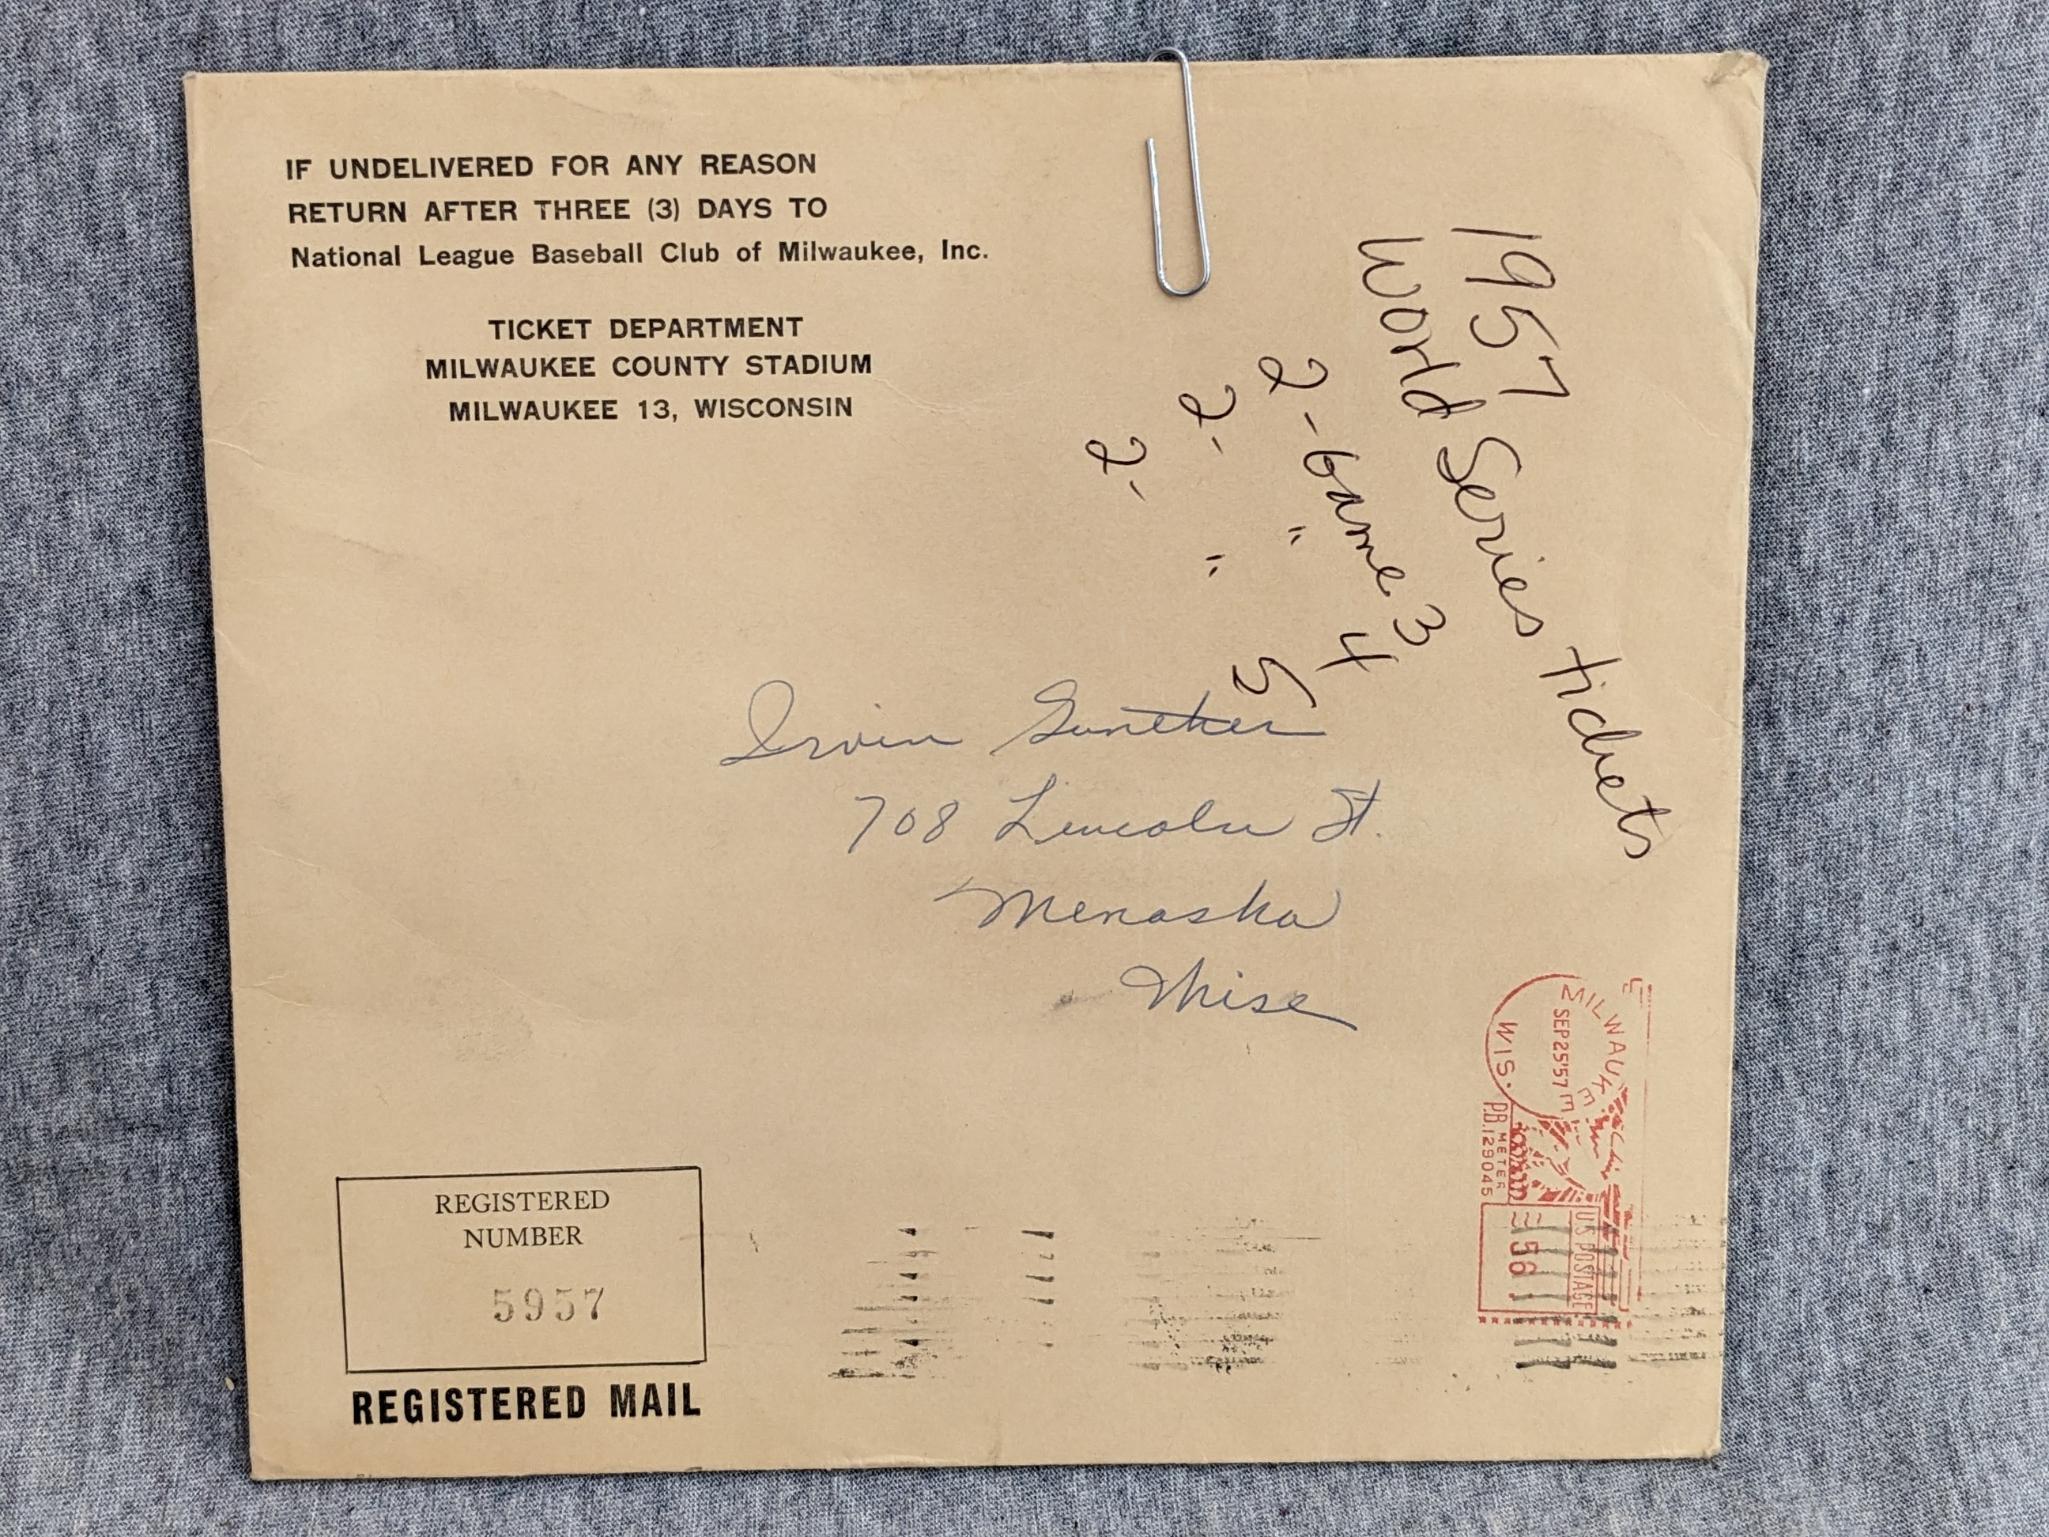 IF UNDELIVERED FOR ANY REASON
RETURN AFTER THREE (3) DAYS TO
National League Baseball Club of Milwaukee, Inc.
TICKET DEPARTMENT
MILWAUKEE COUNTY STADIUM
MILWAUKEE 13, WISCONSIN
1957
World Series tickets
2 - Game 3
2 - " 4
2 - " 5
Irvin Gunther
708 Lincoln St.
Menasha
Wisc
MILWAUKEE
SEP 25'57
WIS.
P.B. METER
P.B. 129045
U.S. POSTAGE
56
REGISTERED
NUMBER
5957
REGISTERED MAIL